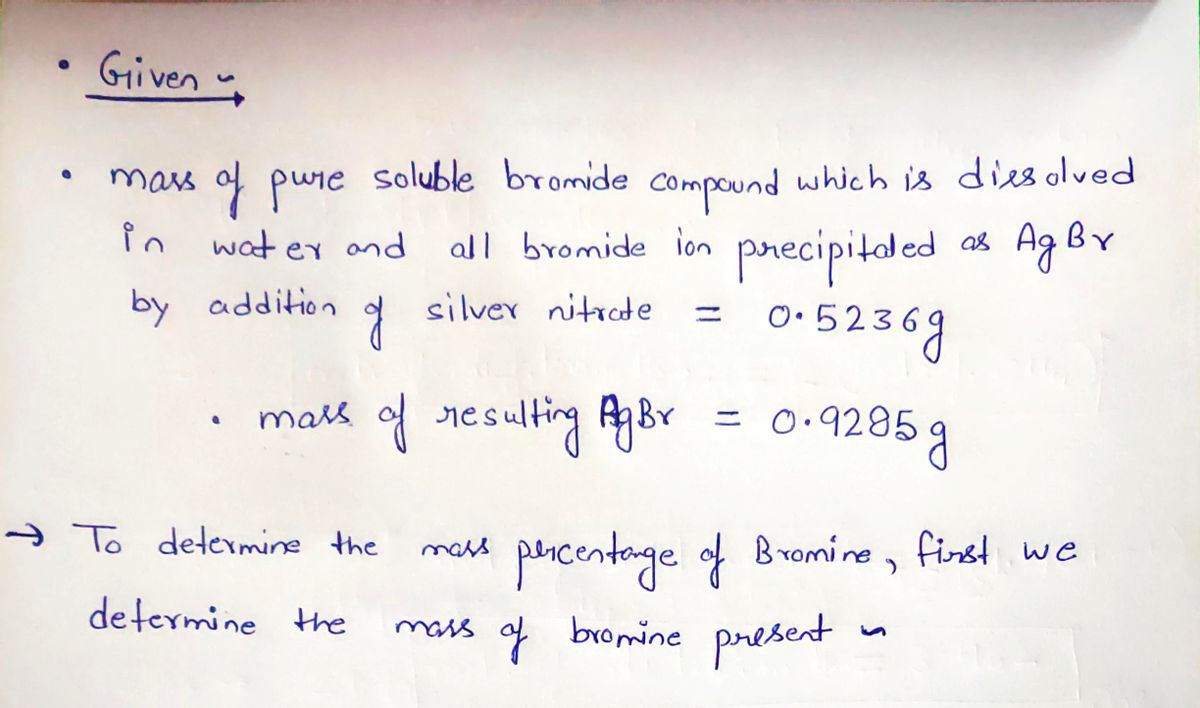 • Given ~
• mass of pure soluble bromide compound which is dissolved
in water and all bromide ion precipitated as AgBr
by addition of silver nitrate = 0.5236g
• mass of resulting AgBr = 0.9285g
→ To determine the mass percentange of Bromine, first we
determine the mass of bromine present ~